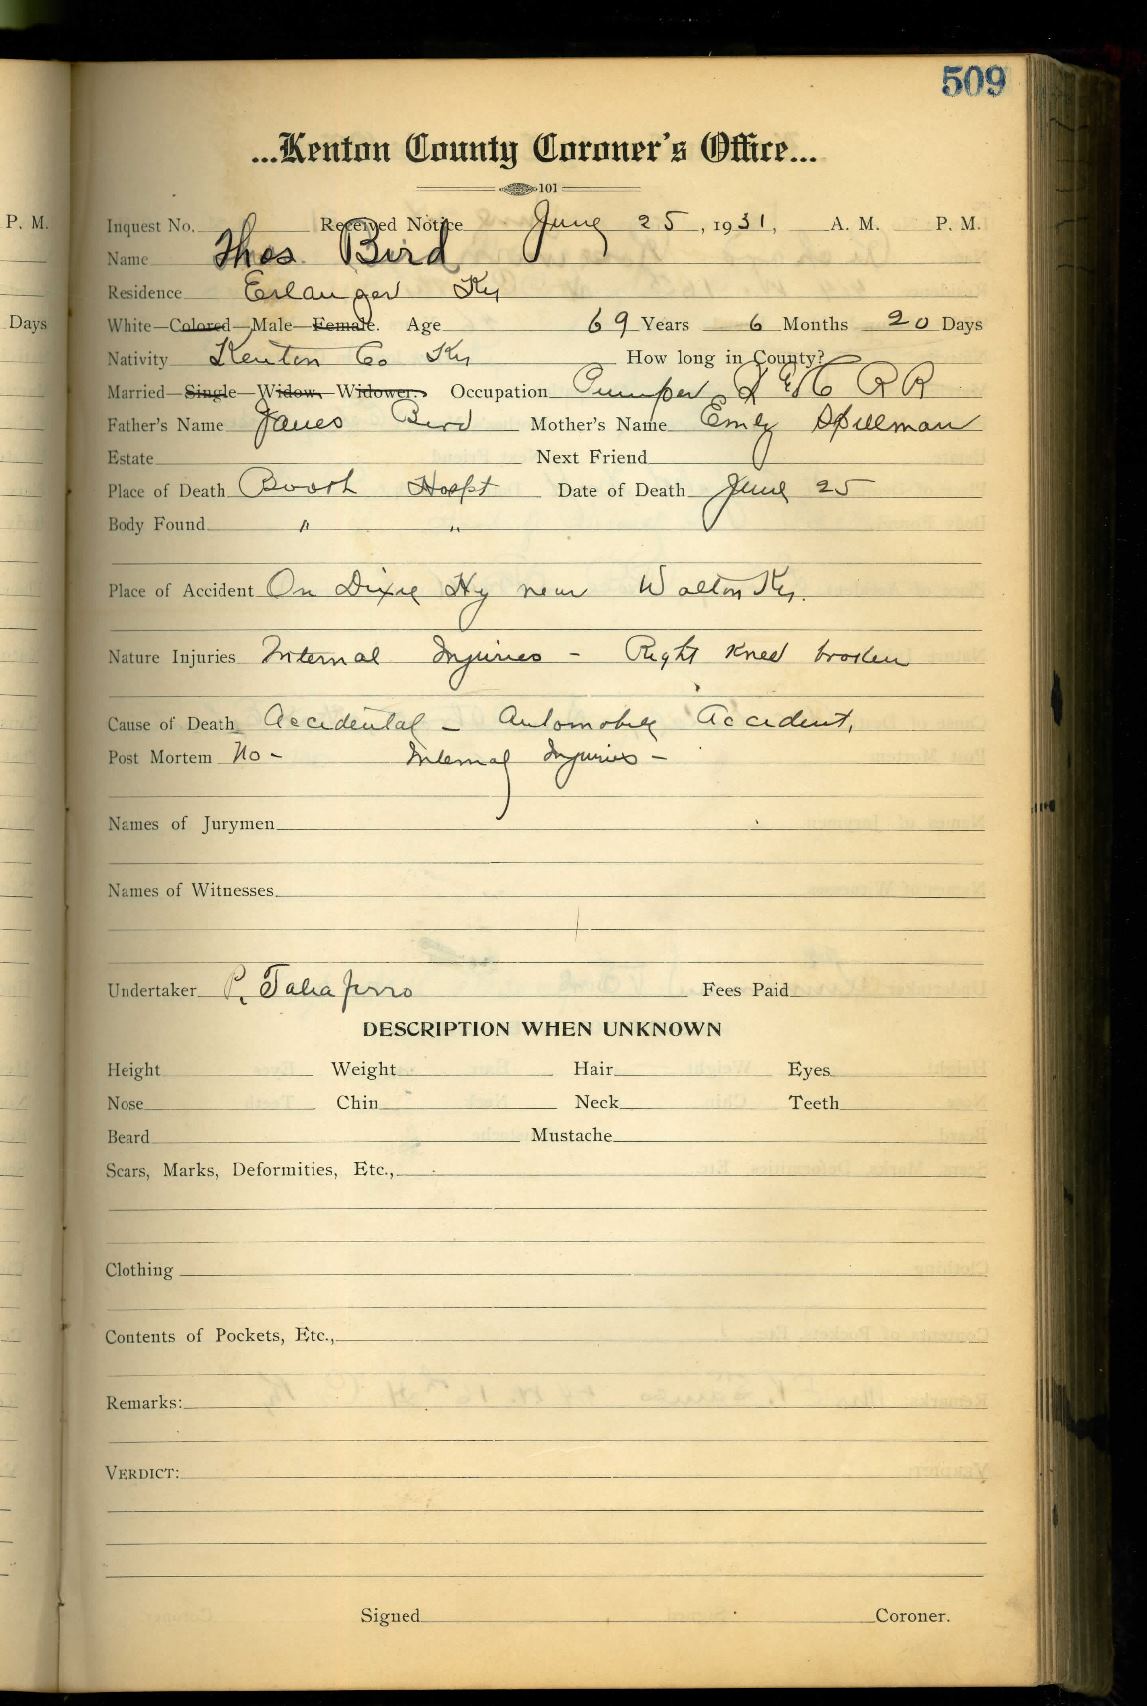 509
...Kenton County Coroner's Office...
101
P. M. Inquest No. Received Notice June 25, 1931, A. M. P. M.
Name Thos Bird
Residence Erlanger Ky
Days White—Colored—Male—Female. Age 69 Years 6 Months 20 Days
Nativity Kenton Co Ky How long in County?
Married—Single—Widow. Widower. Occupation Pumper RR
Father's Name James Bird Mother's Name Emly Spillman
Estate Next Friend
Place of Death Booth Hospt Date of Death June 25
Body Found " "
Place of Accident On Dixie Hy near Walton Ky.
Nature Injuries Internal Injuries - Right Knee broken
Cause of Death Accidental - Automobile Accident,
Post Mortem No - Internal Injuries -
Names of Jurymen
Names of Witnesses
Undertaker P. Taliaferro Fees Paid
DESCRIPTION WHEN UNKNOWN
Height Weight Hair Eyes
Nose Chin Neck Teeth
Beard Mustache
Scars, Marks, Deformities, Etc.,
Clothing
Contents of Pockets, Etc.,
Remarks:
VERDICT:
Signed Coroner.